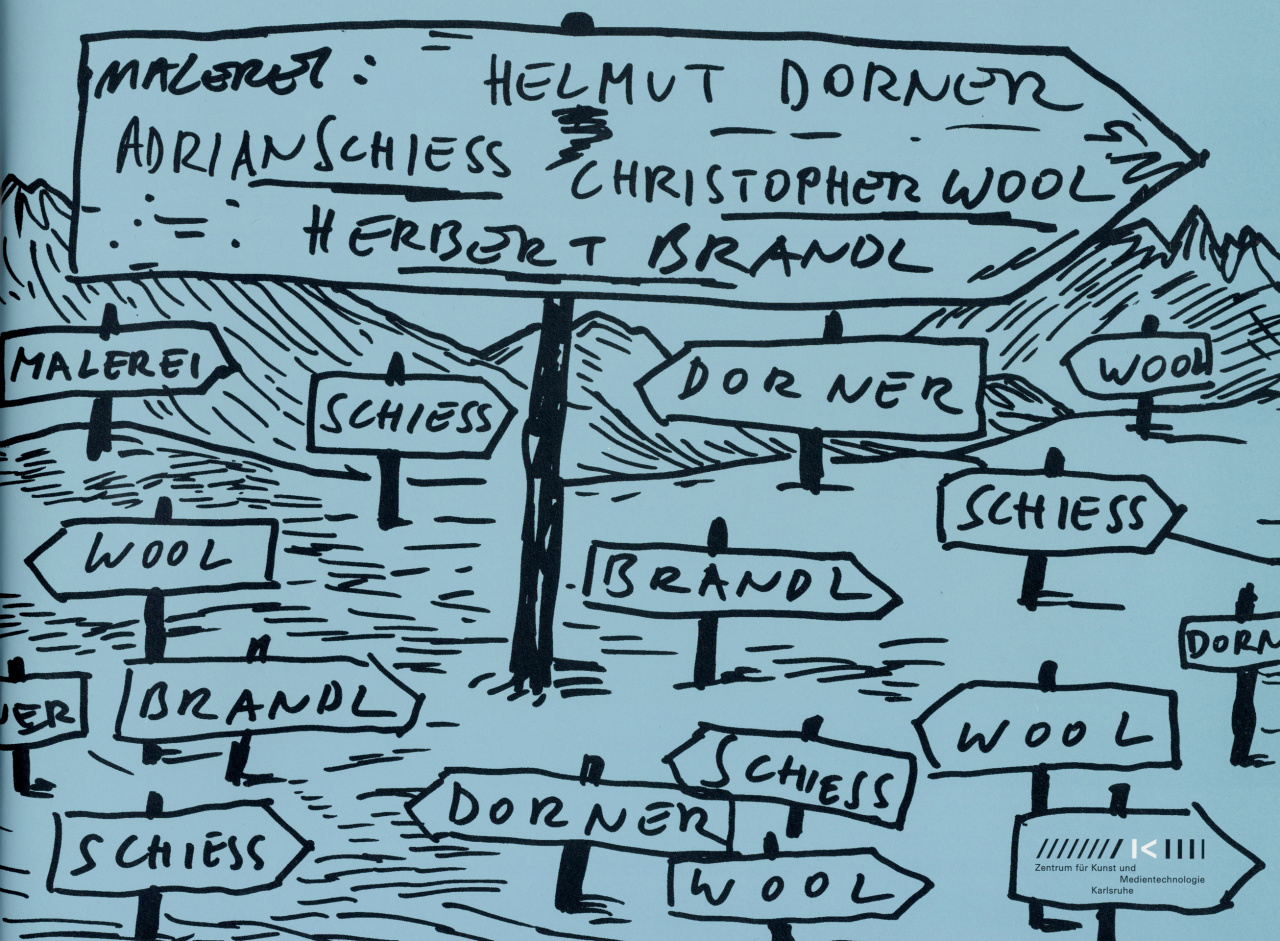 MALEREI: HELMUT DORNER
ADRIAN SCHIESS CHRISTOPHER WOOL
HERBERT BRANDL
MALEREI
SCHIESS
DORNER
WOOL
SCHIESS
WOOL
BRANDL
DORN
NER
BRANDL
WOOL
SCHIESS
DORNER
SCHIESS
WOOL
Zentrum für Kunst und
Medientechnologie
Karlsruhe